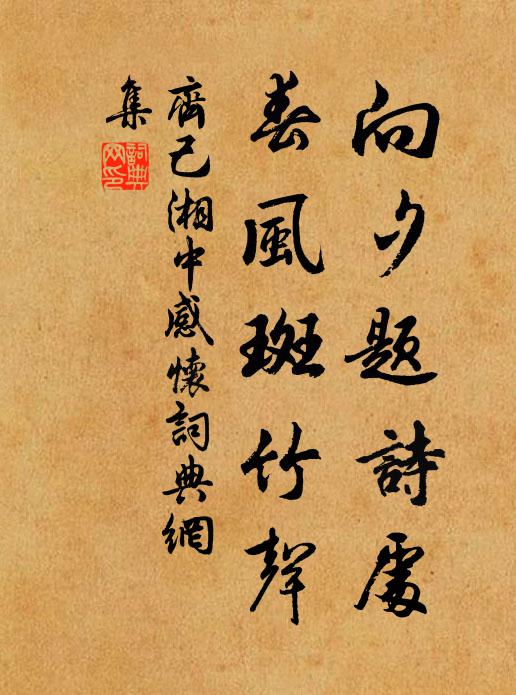 向夕題詩處
春風斑竹聲
齊己湘中感懷詞典網
集
詞典
网印